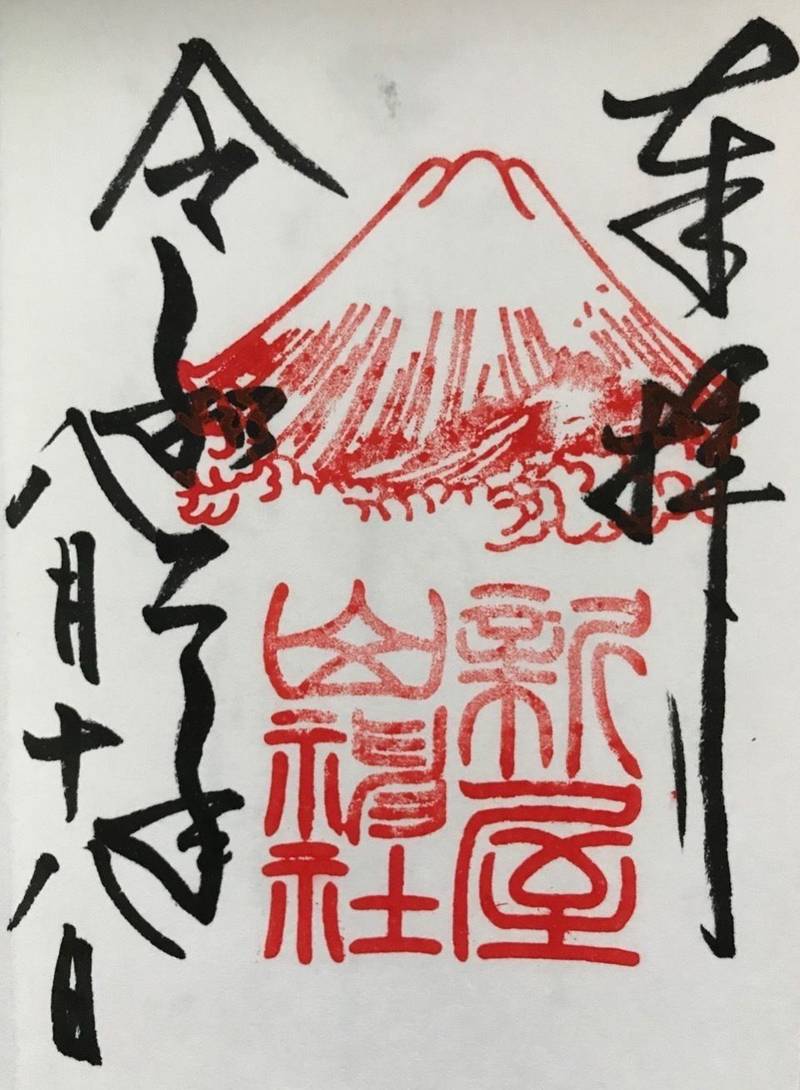 奉拝
新屋
山神社
令和年
八月十八日